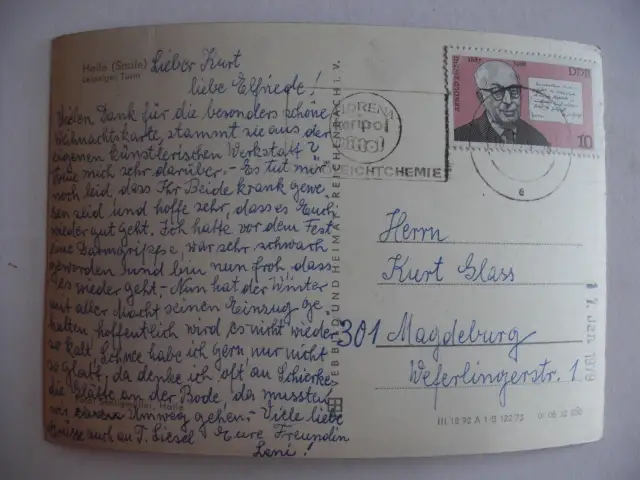 Halle (Saale)
Leipziger Turm
Lieber Kurt
liebe Elfriede!
Vielen Dank für die besonders schöne
Weihnachtskarte, stammt sie aus der
eigenen künstlerischen Werkstatt?
Freue mich sehr darüber. - Es tut mir
noch leid, dass Ihr Beide krank gewe-
sen seid und hoffe sehr, dass es Euch
wieder gut geht. Ich hatte vor dem Fest
eine Darmgrippe, war sehr schwach
geworden und bin nun froh, dass
es wieder geht. - Nun hat der Winter
mit aller Macht seinen Einzug ge-
halten hoffentlich wird es nicht wieder
so kalt. Schnee habe ich gern, nur nicht
so glatt, da denke ich oft an Schierke
die Glätte an der Bode, da mussten
wir einen Umweg gehen. Viele liebe
Grüsse auch an T. Liesel Eure Freundin
Leni!
VEB BILD UND HEIMAT REICHENBACH I. V.
LEICHTCHEMIE
ARNOLD ZWEIG
1887 1968
DDR
10
e
Herrn
Kurt Glass
301 Magdeburg
Weferlingerstr. 1
17. Jan. 1979
III 18 93 A 1-B 122/73